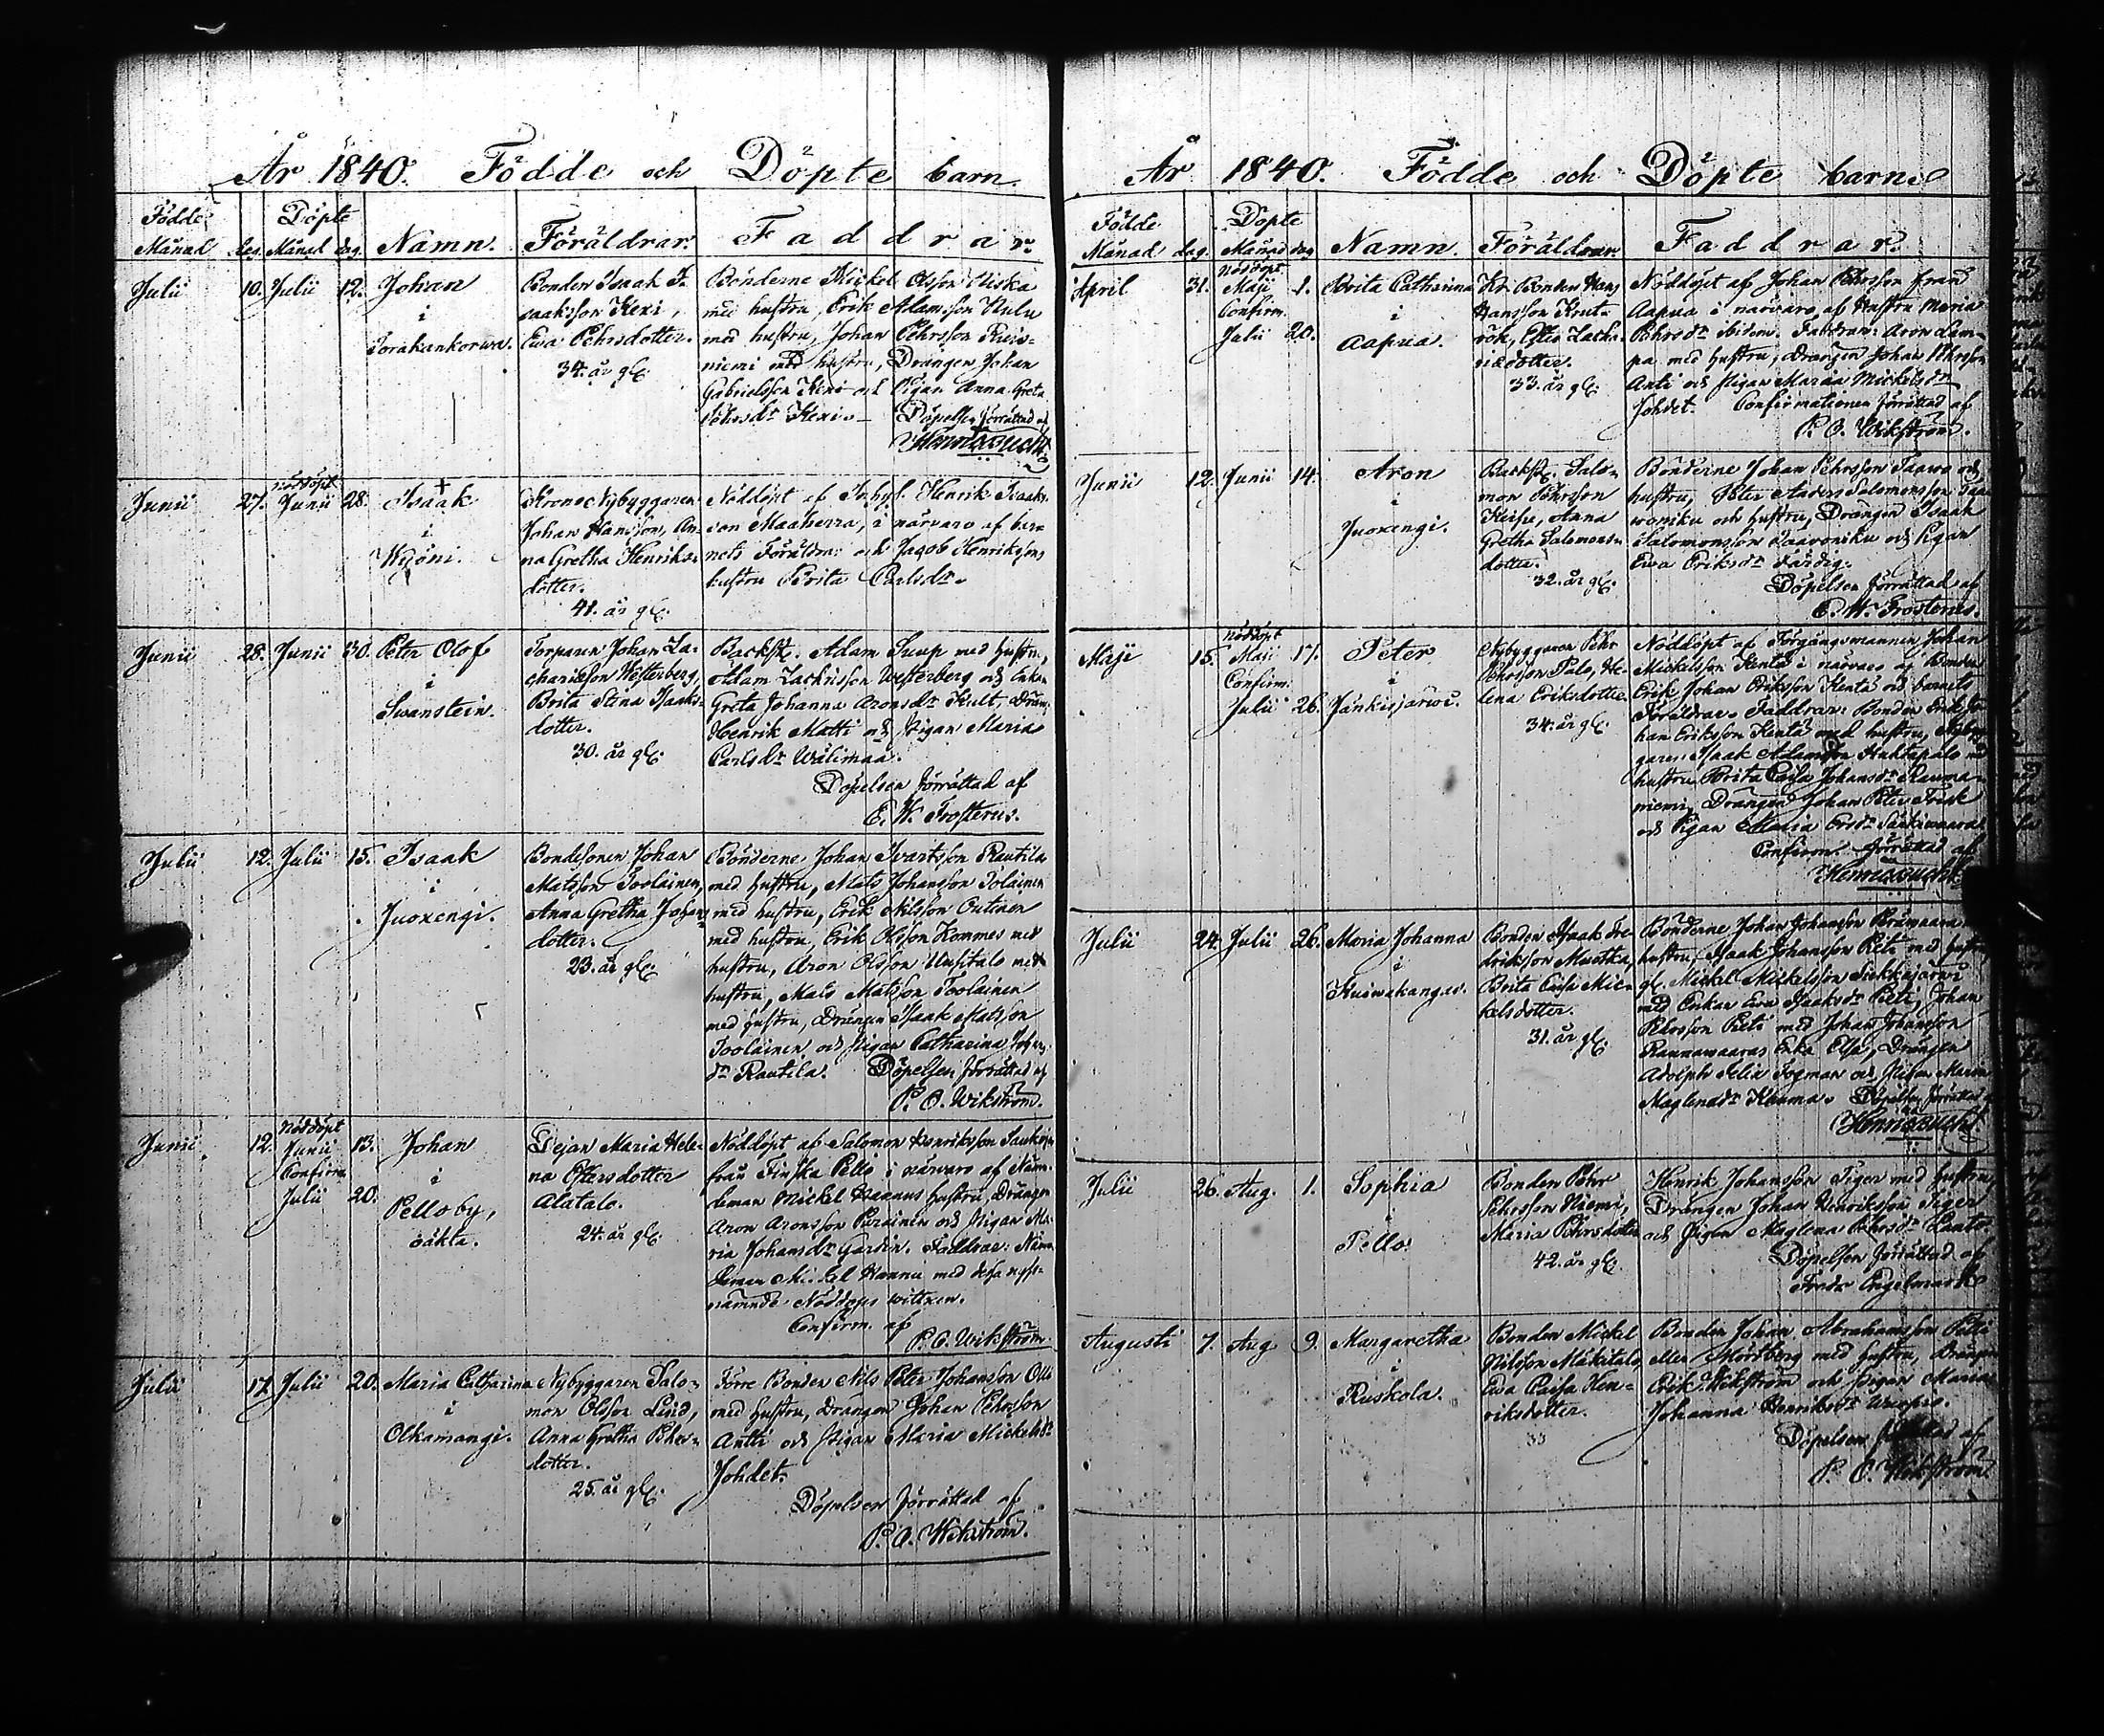 År 1840. Födde och Döpte barn
Födde Döpte
Månad dag. Månad dag. Namn. Föräldrar. Faddrar.
Julii 10. Julii 12. Johan
i
Torakankorwa.
Bonden Isaak I-
saaksson Kexi,
Ewa Pehrsdotter.
34. år gl.
Bönderne Mickel Olsson Niska
med hustru, Erik Adamsson Hulu
med hustru, Johan Pehrsson Kuis-
niemi med hustru, Drängen Johan
Gabrielsson Kexi och Pigan Anna Greta
Pehrsdr Kexi.
Döpelsen förrättad af
Junii 27. nöddöpt Junii 28. Isaak
i
Wyöni.
Krono Nybyggaren
Johan Hansson, An-
na Gretha Henriks-
dotter.
41. år gl.
Nöddöpt af Inhys. Henrik Isaaks-
son Maaherra, i närvaro af bar-
nets Föräldrar och Jagob Henrikssons
hustru Brita Carlsdr.
Junii 28. Junii 30. Peter Olof
i
Swanstein.
Torparen Johan Za-
chariesson Westerberg,
Brita Stina Isaaks-
dotter.
30. år gl.
Backst. Adam Suup med hustru,
Adam Zachrisson Westerberg och Enkan
Greta Johanna Aronsdr Kult, Dräng.
Henrik Matti och Pigan Maria
Carlsdr Wälimaa.
Döpelsen förrättad af
E. W. Frosterus.
Julii 12. Julii 15. Isaak
i
Juoxengi.
Bondesonen Johan
Matsson Toolainen,
Anna Gretha Johans-
dotter.
23. år gl.
Bönderne Johan Ivartsson Rautila
med hustru, Mats Johansson Tolainen
med hustru, Erik Nilsson Outinen
med hustru, Erik Olsson Kommes med
hustru, Aron Olsson Uusitalo med
hustru, Mats Matsson Toolainen
med hustru, Drängen Isaak Matsson
Toolainen och Pigan Catharina Johans-
dr Rautila. Döpelsen förrättad af
P. O. Wikström.
Junii 12. Nöddöpt Junii 13. Johan
Confirm.
Julii 20.
i
Pello by,
oäkta.
Pejan Maria Hele-
na Offersdotter
Alatalo.
24. år gl.
Nöddöpt af Salomon Henriksson
från Finska Pello i närvaro af Näm-
deman Mickel Hannus hustru, Drängen
Aron Aronsson Puranen och Pigan Ma-
ria Johansdr Gardin. Faddrar: Näm-
deman Mickel Hannu med desa nyss-
nämnde Nöddops wittnen.
Confirm. af
P. O. Wikström.
Julii 17. Julii 20. Maria Catharina
i
Olkamangi.
Nybyggaren Salo-
mon Olsson Lind,
Anna Gretha Pehrs-
dotter.
25. år gl.
Förre Bonden Nils Peter Johansson Olli
med hustru, Drängen Johan Pehrsson
Antti och Pigan Maria Mickelsdr
Johdet.
Döpelsen förrättad af
P. O. Wikström.
År 1840. Födde och Döpte barn
Födde Döpte
Månad dag. Månad dag Namn. Föräldrar. Faddrar.
April 31. Nöddöpt Maji 1. Brita Catharina
Confirm.
Julii 20.
i
Aapua.
Kr. Bonden Hans
Hansson Krut-
rök, Elsa Zacha-
risdotter.
33. år gl.
Nöddöpt af Johan Pehrsson från
Aapua i närvaro af Hustru Maria
Pehrsdr ibidem. Faddrar: Aron Lam-
pa med hustru, Drängen Johan Pehrsson
Anti och Pigan Maria Mickelsdr
Johdet. Confirmationen förrättad af
P. O. Wikström.
Junii 12. Junii 14. Aron
i
Juoxengi.
Backst. Salo-
mon Pehrsson
Keisu, Anna
Gretha Salomons-
dotter.
32. år gl.
Bönderne Johan Pehrsson Taawo och
hustru, Peter Anders Salomonsson Paa-
woniku och hustru, Drängen Isaak
Salomonsson Paavoniku och Pigan
Ewa Eriksdr Färdig.
Döpelsen förrättad af
E. W. Frosterus.
Maji 15. Nöddöpt Maji 17. Peter
Confirm:
Julii 26.
i
Jänkisjärwi.
Nybyggaren Pehr
Pehrsson Palo, He-
lena Eriksdotter
34. år gl.
Nöddöpt af Förgångsmannen Johan
Mickelsson Kentä i närvaro af Bonden
Erik Johan Eriksson Kentä och barnets
Föräldrar. Faddrar: Bonden Erik Jo-
han Eriksson Kentä med hustru, Nybyg-
garen Isaak Adamsson Huhtapalo med
hustru Brita Caisa Johansdr Rauma-
niemi, Drängen Johan Peter Frisk
och Pigan Maria Ersdr
Confirm. förrättad af
Julii 24. Julii 26. Maria Johanna
i
Kuiwakangas.
Bonden Isaak Fre-
driksson Muotka,
Brita Caisa Mic-
kelsdotter.
31. år gl.
Bönderne Johan Johansson
hustru, Isaak Johansson Pieti med hustru,
gl. Mickel Mickelsson Sukkajärwi
med Enkan Ewa Isaaksdr Pieti, Johan
Pehrsson Pieti med Johan Johansson
Rannawaaras Enka Elsa, Drängen
Adolph Felix Fogman och Pigan Maria
Maglenasdr Kauma. Döpelsen förrättad af
Julii 26. Aug. 1. Sophia
i
Pello.
Bonden Pehr
Pehrsson Niemi,
Maria Pehrsdotter
42. år gl.
Henrik Johansson Tiger med hustru,
Drängen Johan Henriksson Tiger
och Pigan Maglena Pehrsdr Lanto.
Döpelsen förrättad af
Fredr Engelmark
Augusti 7. Aug. 9. Margaretha
i
Ruskola.
Bonden Mickel
Nilsson Mäkitalo,
Ewa Caisa Hen-
riksdotter.
33
Bonden Johan Abrahamsson Pelli
eller Mörtberg med hustru, Drängen
Erik Wikström och Pigan Maria
Johanna Henriksdr
Döpelsen förrättad af
P. O. Wikström.